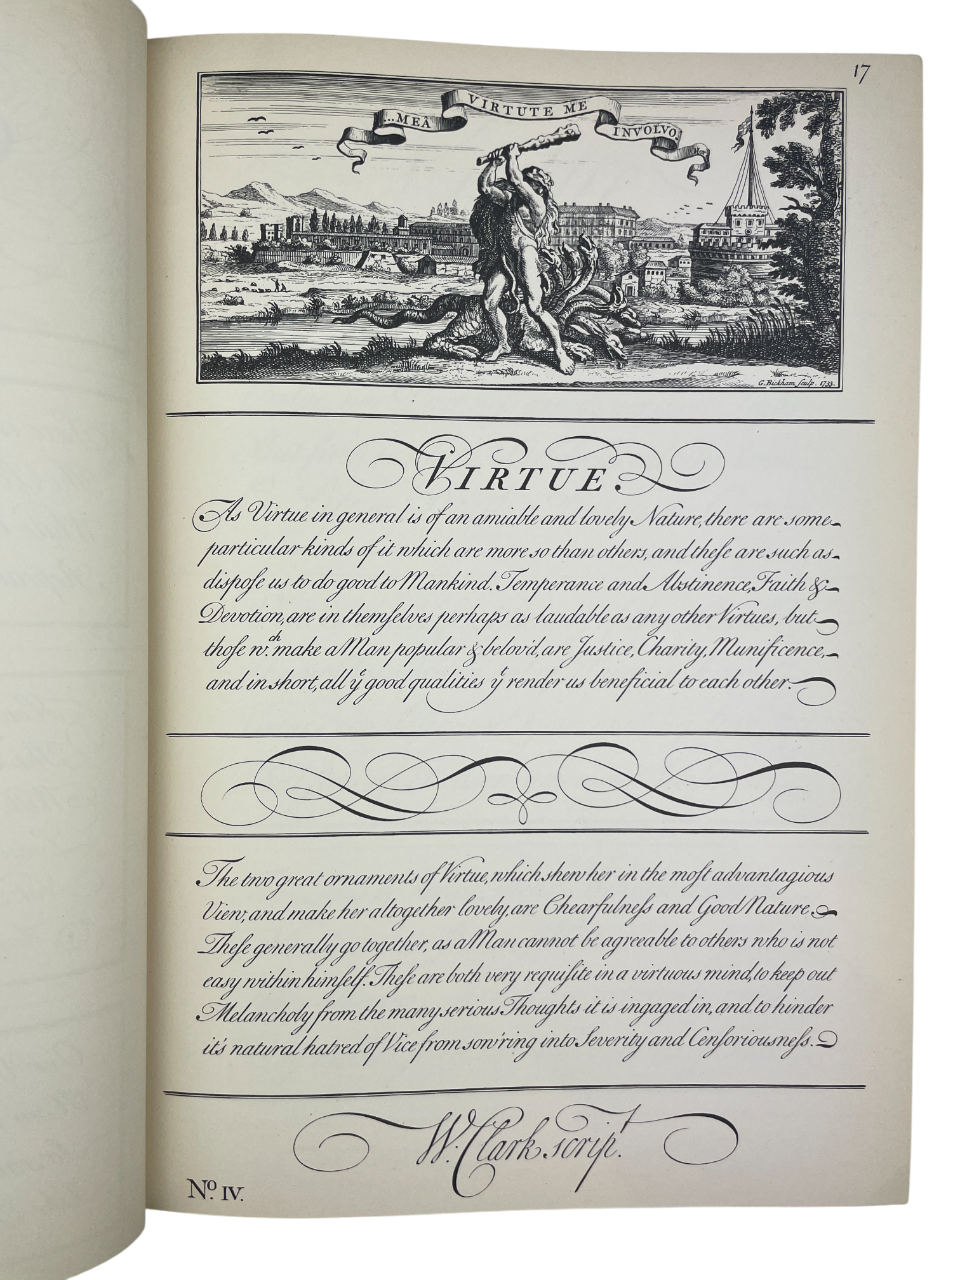 17
...MEÂ VIRTUTE ME INVOLVO.
G. Bickham sculp. 1733.
VIRTUE.
As Virtue in general is of an amiable and lovely Nature, there are some
particular kinds of it which are more so than others, and theſe are such as
dispoſe us to do good to Mankind. Temperance and Abstinence, Faith &
Devotion, are in themſelves perhaps as laudable as any other Virtues, but
thoſe w.ch make a Man popular & belov'd, are Justice, Charity, Munificence,
and in short, all yᵉ good qualities yᵗ render us beneficial to each other.
The two great ornaments of Virtue, which shew her in the moſt advantagious
View, and make her altogether lovely, are Chearfulneſs and Good Nature.
Theſe generally go together, as a Man cannot be agreeable to others who is not
easy within himſelf. Theſe are both very requiſite in a virtuous mind, to keep out
Melancholy from the many serious Thoughts it is ingaged in, and to hinder
it's natural hatred of Vice from sow'ring into Severity and Cenſoriousneſs.
W. Clark scripᵗ.
Nº. IV.